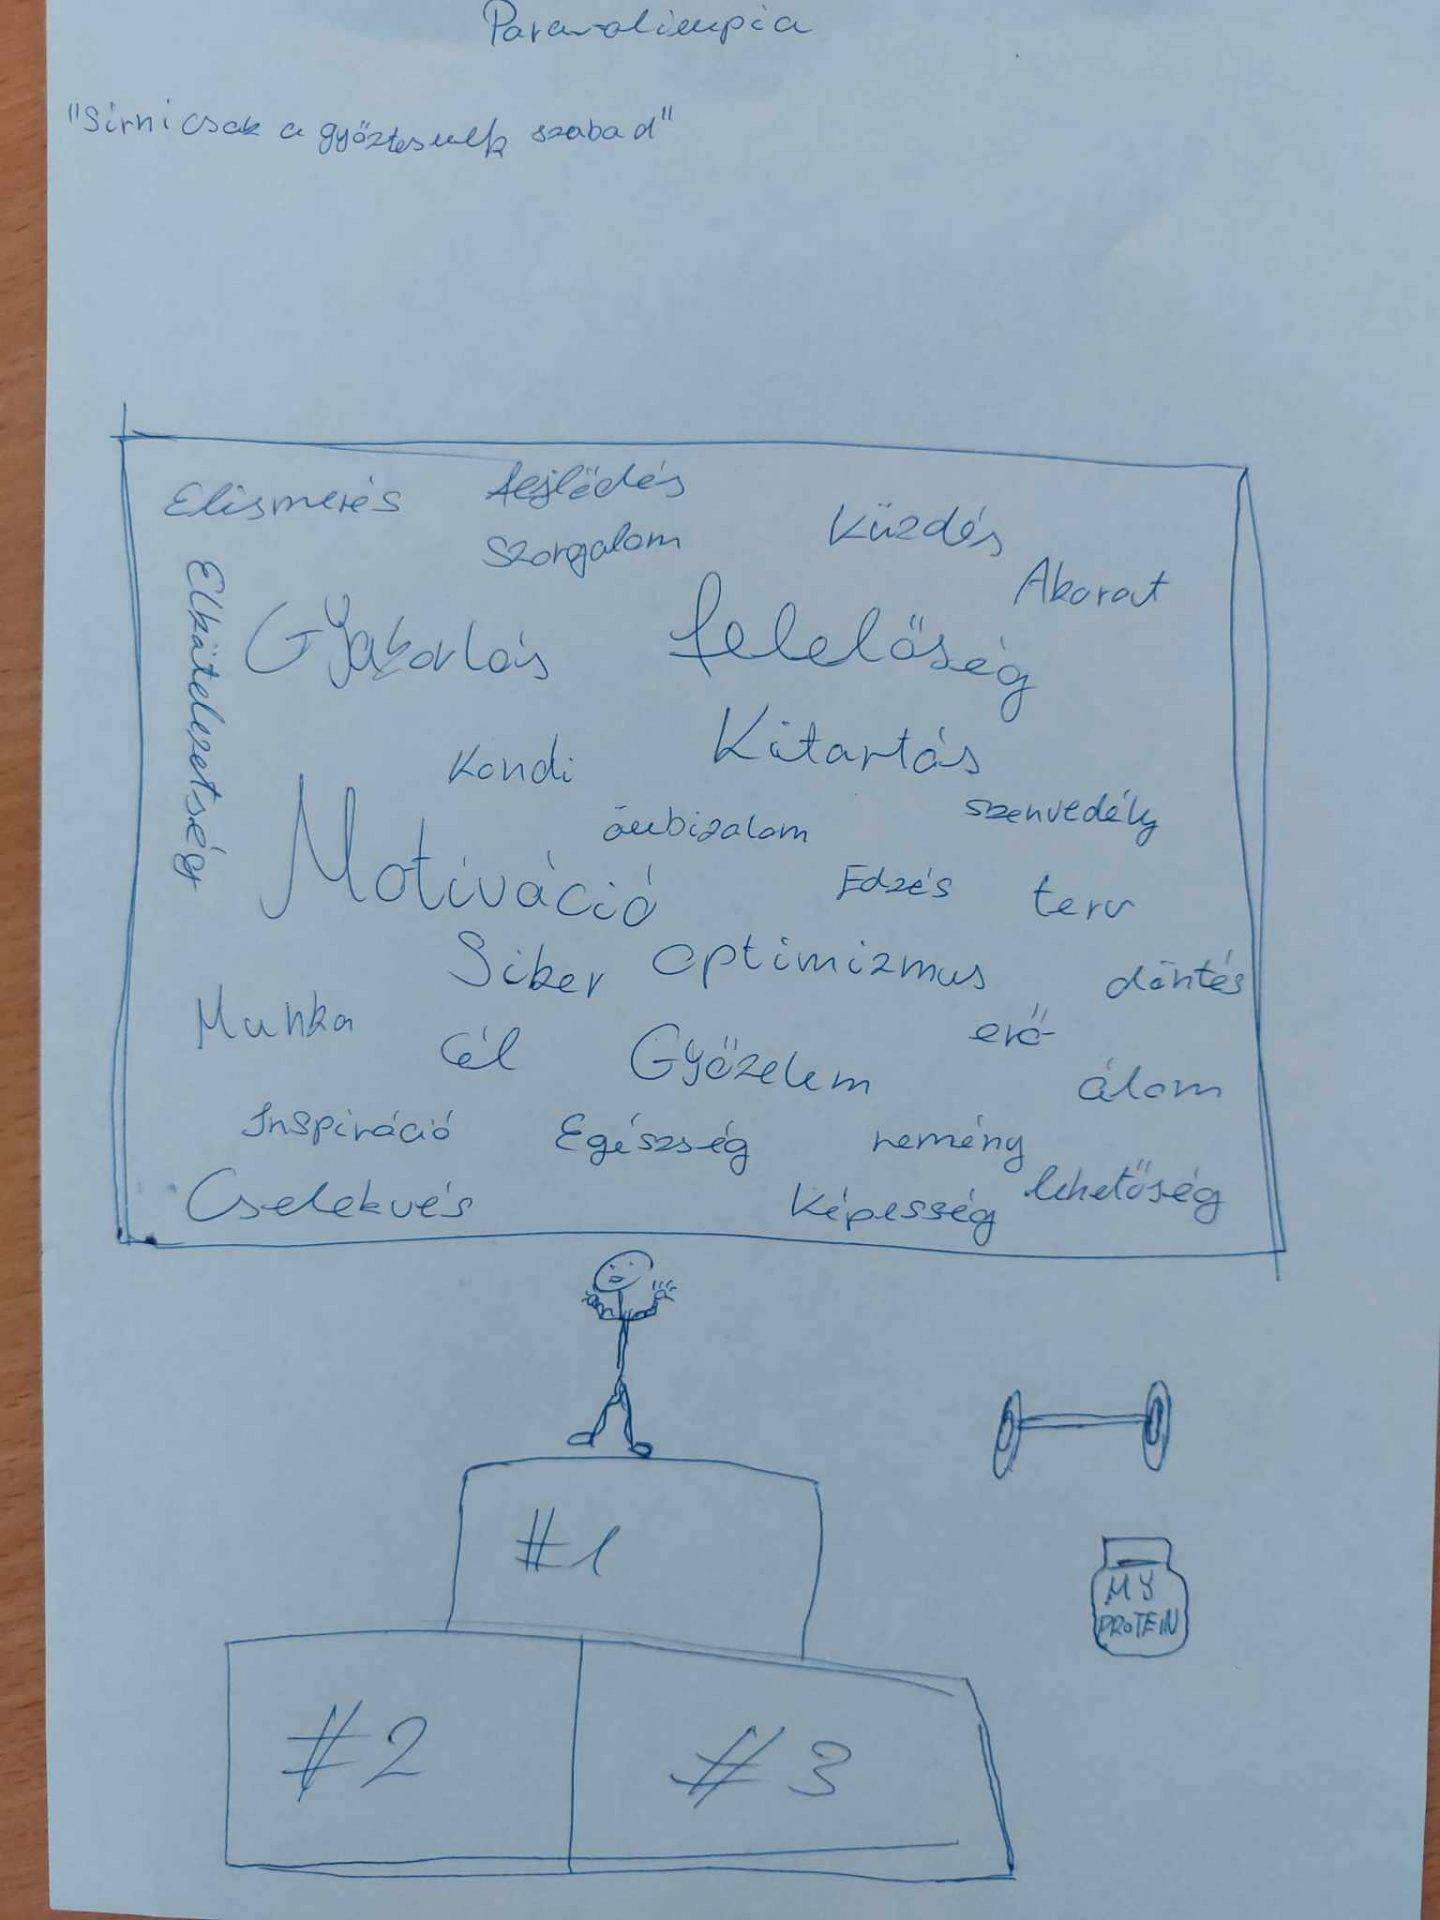 Paraolimpia
"Sírni csak a győztesnek szabad"
Elismerés
fejlődés
Küzdés
szorgalom
Akarat
Elkötelezettség
Gyakorlás
felelőség
Kitartás
Kondi
önbizalom
szenvedély
Motiváció
Edzés
terv
Siker
optimizmus
döntés
Munka
cél
Győzelem
erő
álom
Inspiráció
Egészség
remény
Cselekvés
Képesség
lehetőség
#1
MY
PROTEIN
#2
#3